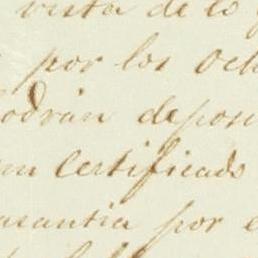 vista de lo
por los Och
odrán deposi
un Certificado
arantia por e